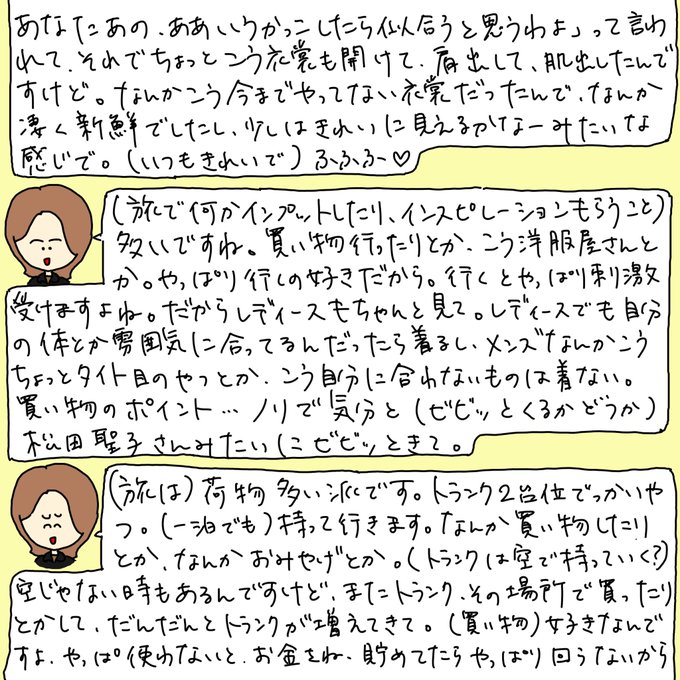 あなたあの、ああいうかっこしたら似合うと思うわよ」って言わ
れて、それでちょっとこう衣裳も開けて、肩出して、肌出したんで
すけど。なんかこう今までやってない衣裳だったんで、なんか
凄く新鮮でしたし、少しはきれいに見えるかなーみたいな
感じで。(いつもきれいで)ふふふー♡
(旅で何かインプットしたり、インスピレーションもらうこと)
多いですね。買い物行ったりとか、こう洋服屋さんと
か。やっぱり行くの好きだから。行くとやっぱり刺激
受けますよね。だからレディースもちゃんと見て。レディースでも自分
の体とか雰囲気に合ってるんだったら着るし、メンズなんかこう
ちょっとタイト目のやつとか、こう自分に合わないものは着ない。
買い物のポイント…ノリで気分と(ビビッとくるかどうか)
松田聖子さんみたいにビビッときて。
(旅は)荷物多い派です。トランク2台位でっかいや
つ。(一泊でも)持って行きます。なんか買い物したり
とか、なんかおみやげとか。(トランクは空で持っていく?)
空じゃない時もあるんですけど、またトランク、その場所で買ったり
とかして、だんだんとトランクが増えてきて。(買い物)好きなんで
すよ、やっぱ使わないと、お金をね、貯めてたらやっぱり回らないから